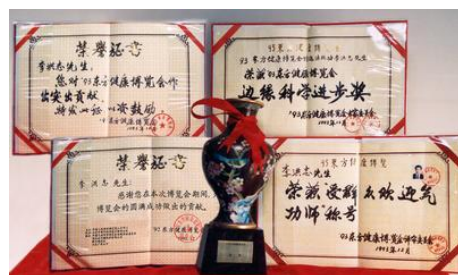 荣誉证书
李洪志先生:
您对'93东方健康博览会作
出突出贡献,
特发此证,以资鼓励。
'93东方健康博览会
1993年12月
93东方健康博览
荣获'93东方健康博览会
边缘科学进步奖
'93东方健康博览会评审委员会
1993年12月
荣誉证书
李洪志先生:
感谢您在本次博览会期间,为
博览会的圆满成功做出的贡献。
93东方健康博览
李洪志先生:
荣获受群众欢迎气
功师"称号
'93东方健康博览会评审委员会
1993年12月